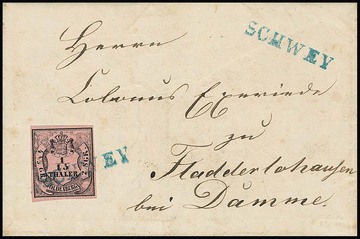 SCHWEY
Herrn
Colonus Exeriede
zu
Fladderlohausen
bei Damme.
EY
1
15
THALER
OLDENBURG